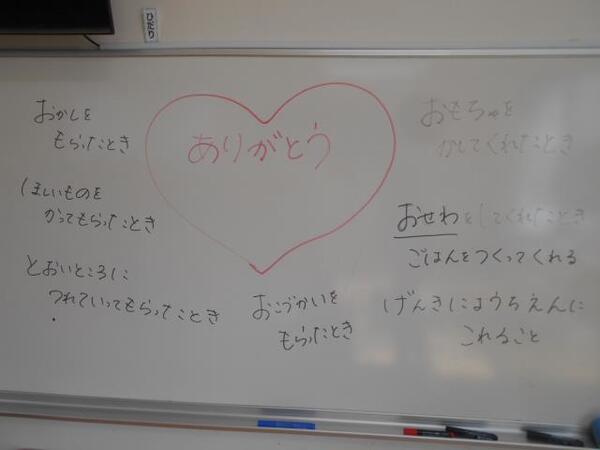 ありがとう
おかしを
もらったとき
ほしいものを
かってもらったとき
とおいところに
つれていってもらったとき
おこづかいを
もらったとき
おもちゃを
かしてくれたとき
おせわをしてくれたとき
ごはんをつくってくれる
げんきにようちえんに
これること